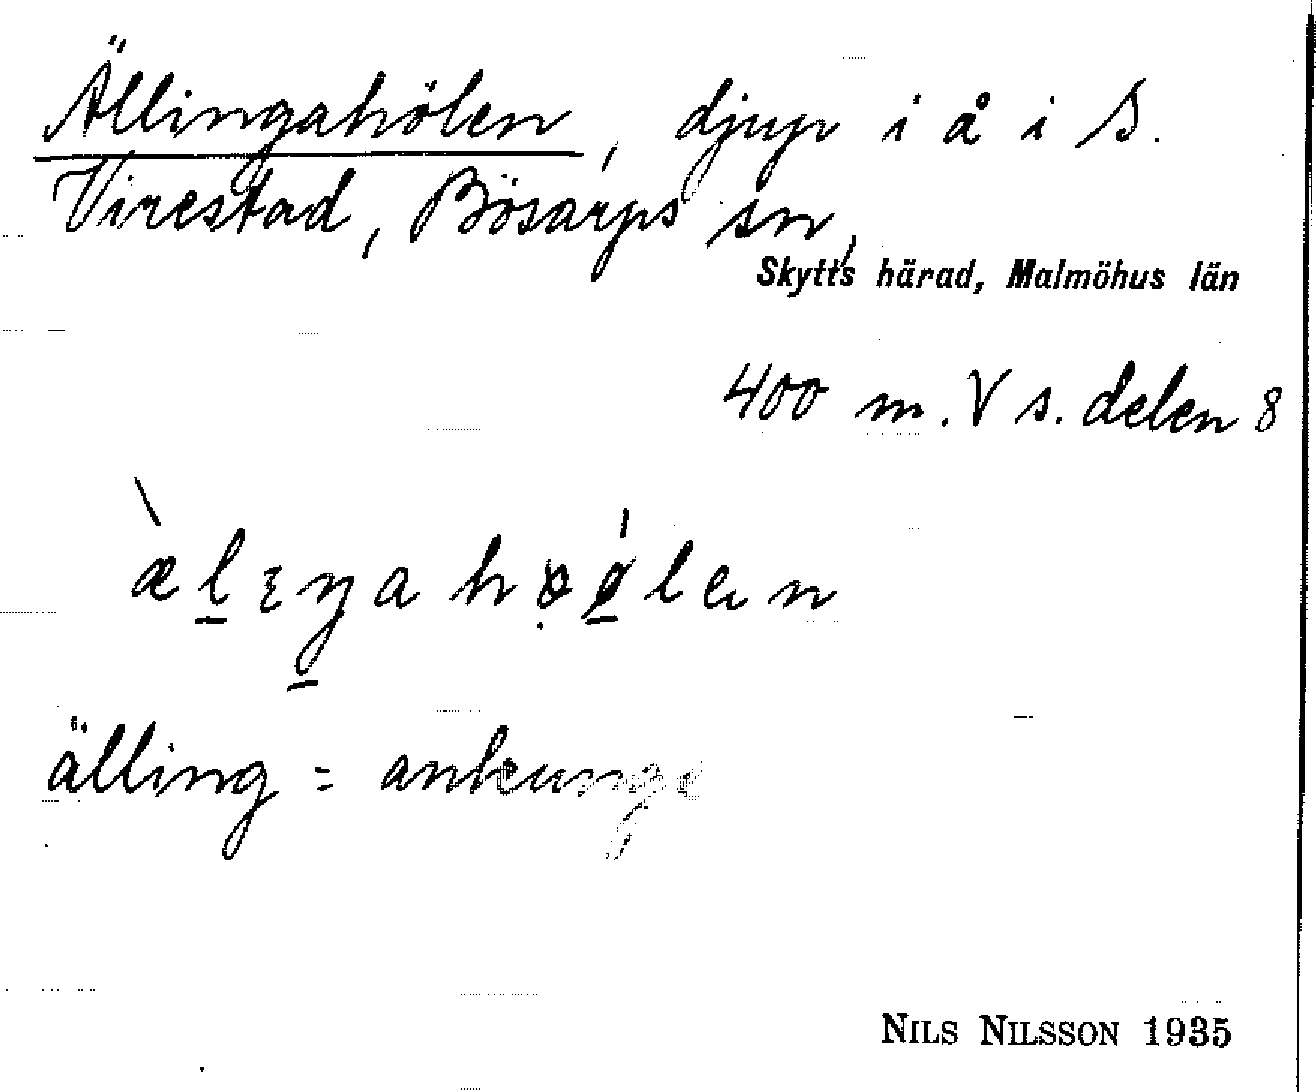 Ällingahölen, djup i å i S.
Virestad, Bösarps sn,
Skytts härad, Malmöhus län
400 m. V s. delen 8
älling = ankunge
NILS NILSSON 1935